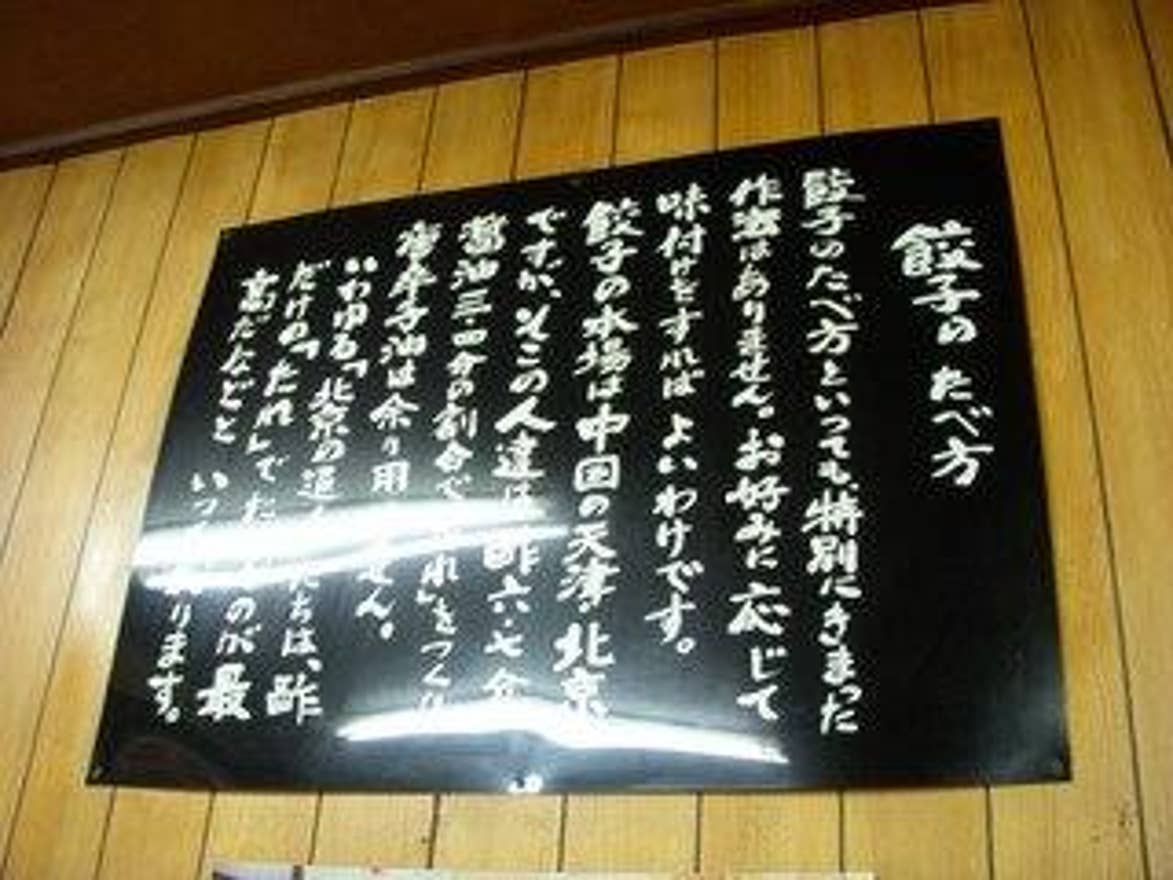 餃子のたべ方
餃子のたべ方といっても、特別にきまった
作法はありません。お好みに応じて
味付けをすればよいわけです。
餃子の本場は中国の天津・北京
ですが、そこの人達は酢六・七分
醤油三・四分の割合で「たれ」をつくり
唐辛子油は余り用ません。
いわゆる「北京の通たちは、酢
だけの「たれ」でたのが最
高だなどと いっります。